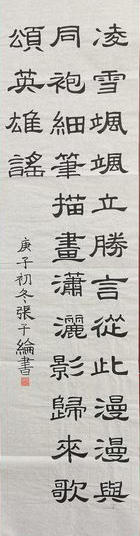 凌雪颯颯立勝言從此漫漫與
同袍細筆描畫瀟灑影歸來歌
頌英雄謠
庚子初冬張子綸書